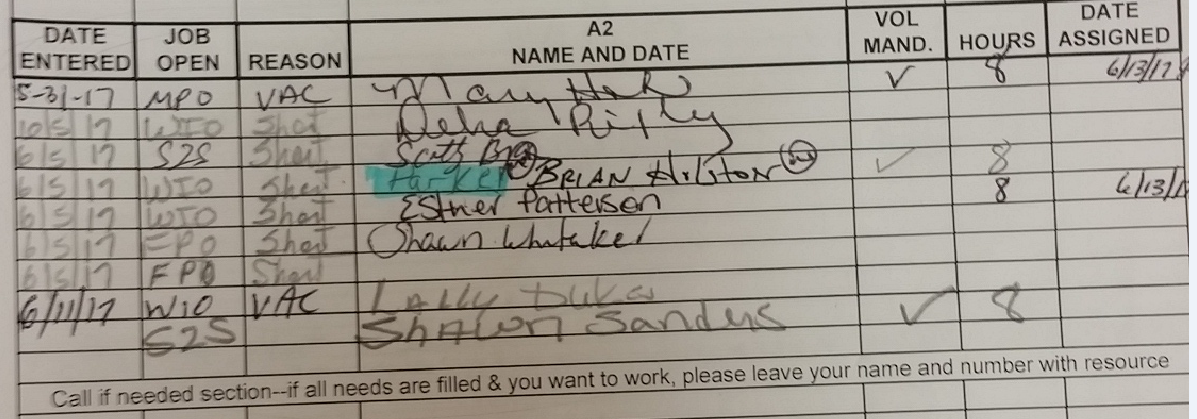 DATE ENTERED JOB OPEN REASON A2 NAME AND DATE VOL MAND. HOURS DATE ASSIGNED
5-31-17 MPO VAC Mary 8 6/13/17
10/5/17 WIO Short Delia Ripley
6/5/17 S2S Short Scott
6/5/17 WIO Short Harker BRIAN HILSTON 8
6/5/17 WIO Short Esther Patterson 8 6/13/1
6/5/17 FPO Short Shawn Whitaker
6/5/17 FPO Short
6/11/17 WIO VAC Lally Duka
S2S SHAWN Sanders 8
Call if needed section--if all needs are filled & you want to work, please leave your name and number with resource